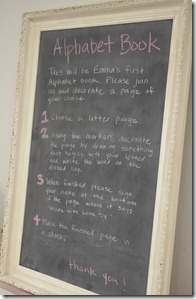 Alphabet Book
This will be Emma's first
Alphabet book. Please join
in and decorate a page of
your choice
1 Choose a letter page
2 Using the markers, decorate
the page by drawing something
that begins with your letter
and write the word on the
dotted line
3 When finished please sign
your name at the bottom
of the page where it says
"Made with Love by"
4 Place the finished page in
a
thank you!